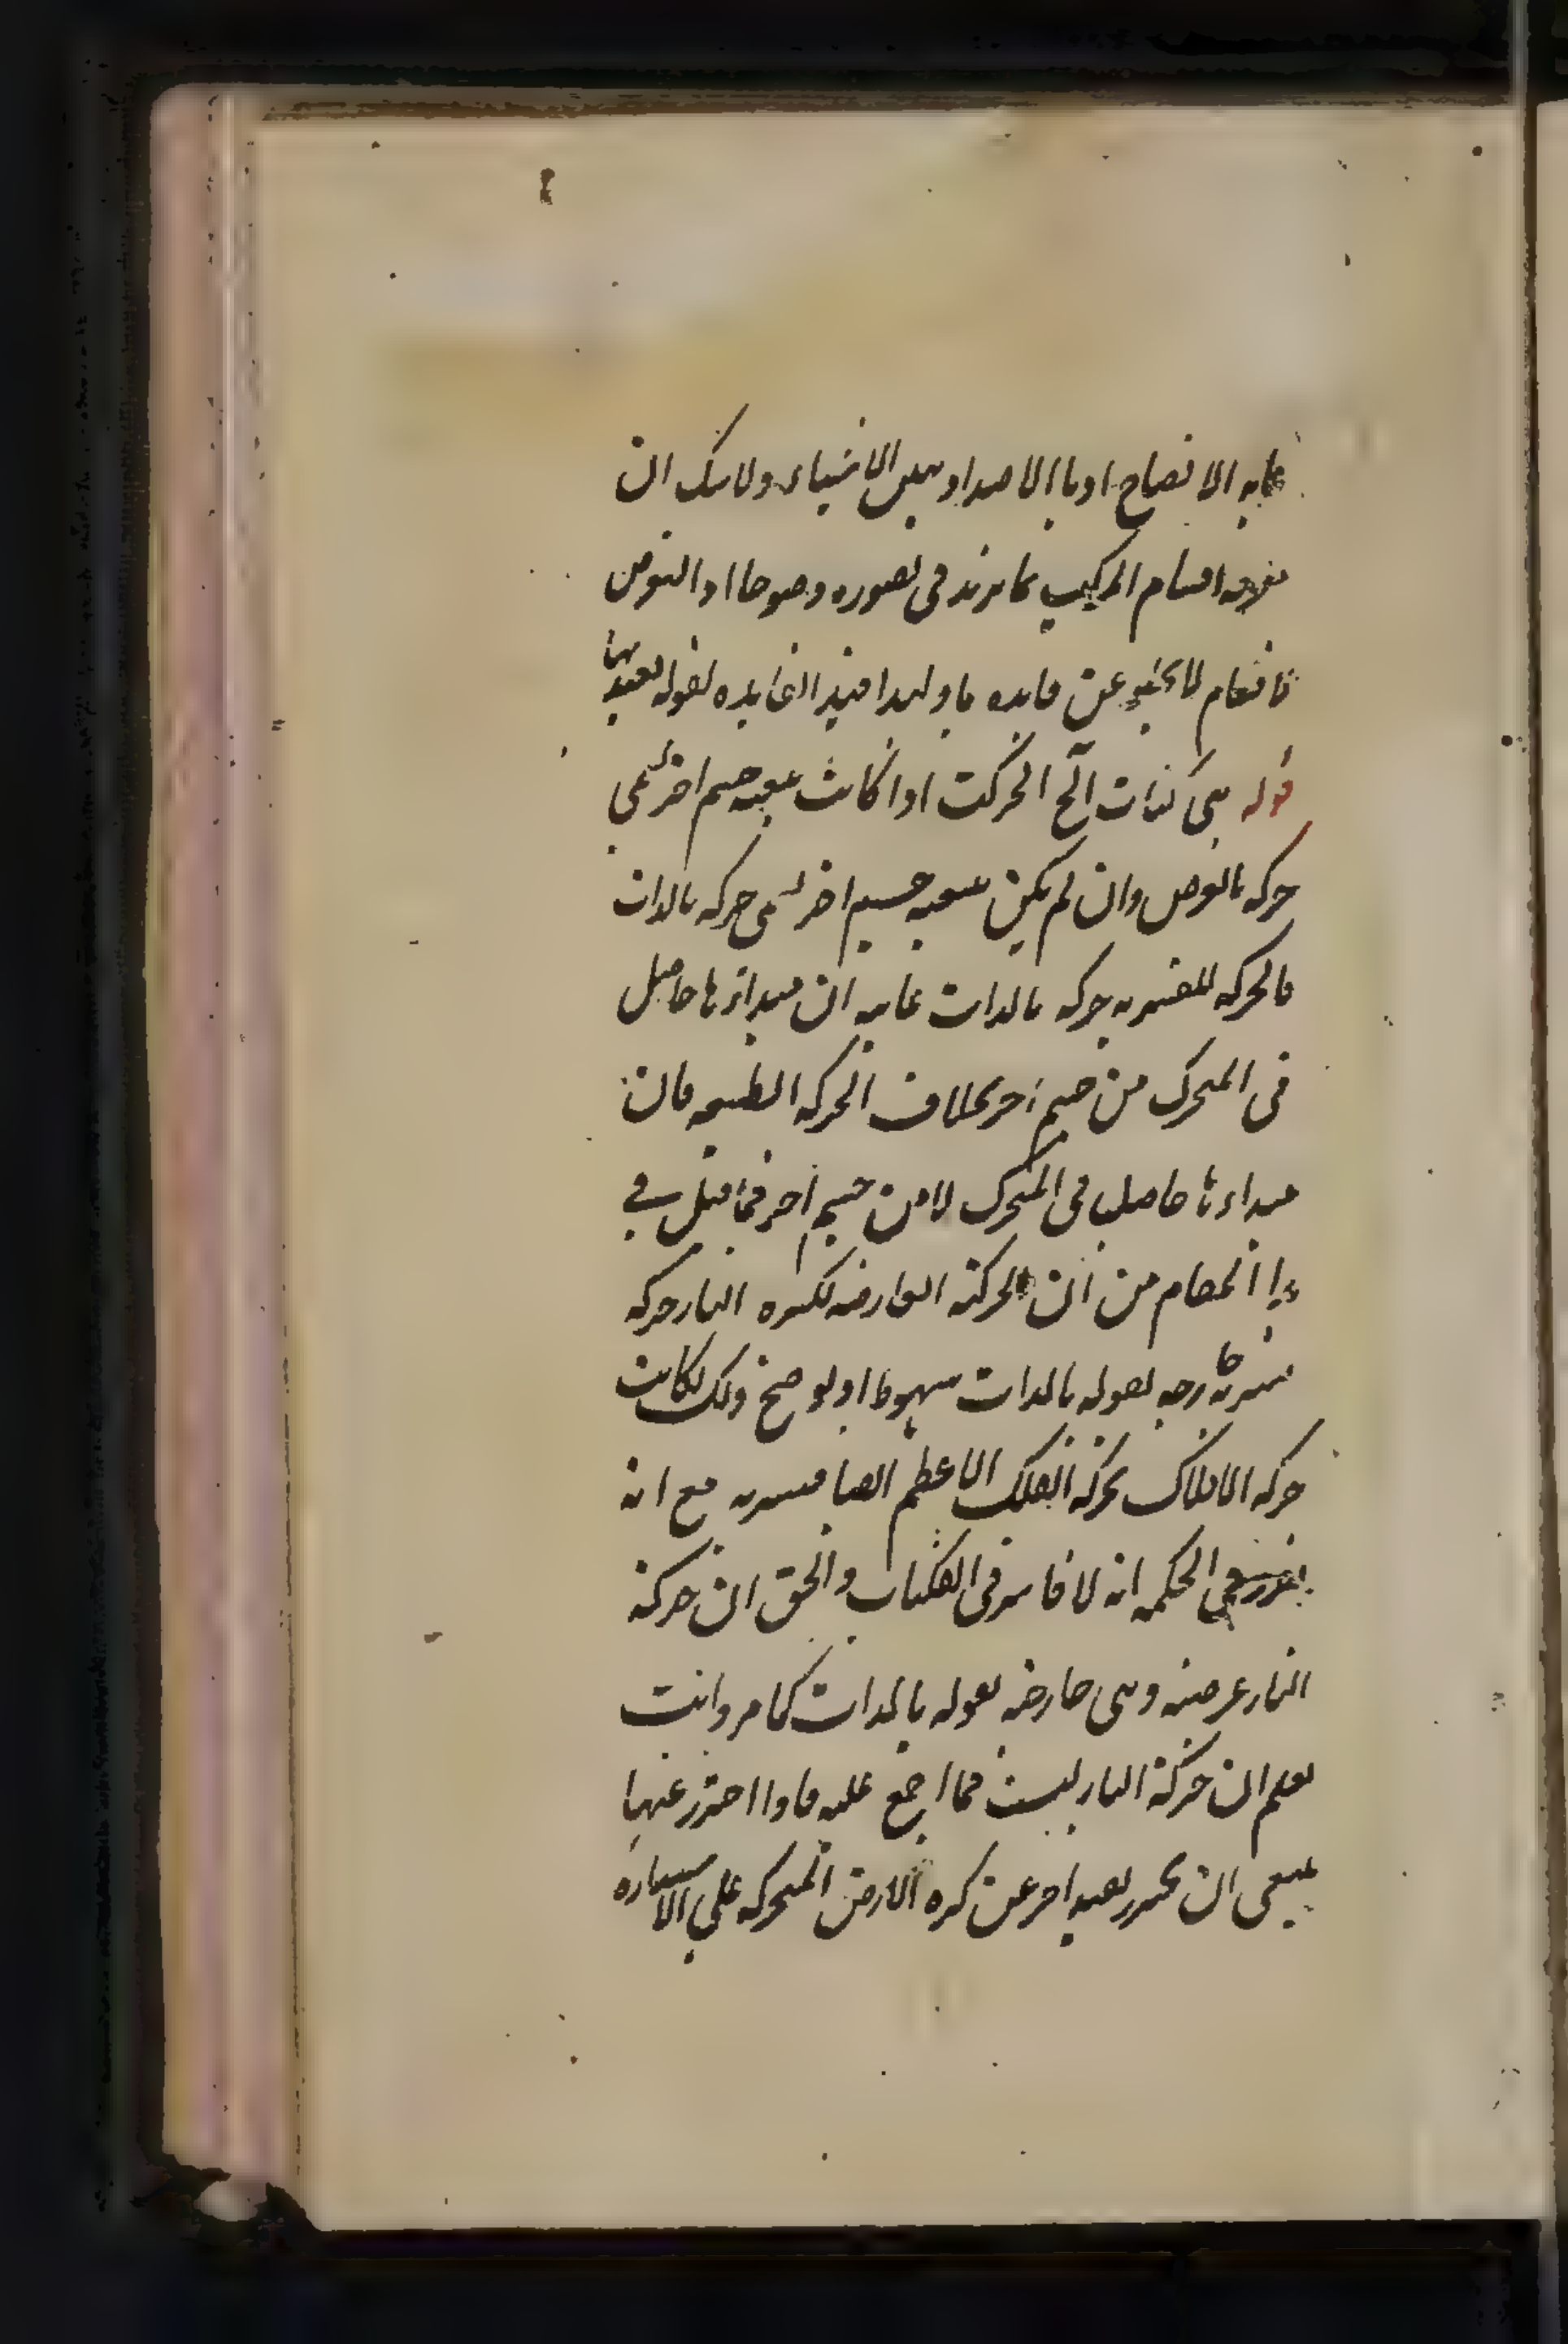 غاية الاتضاح اذ بالاضداد يتبين الاشياء ولا شك ان
معرفة اقسام المركب مما يزيد في تصوره وضوحا اذ التعرض
لا يخلو عن فايده ما ولهذا قيد الفايده لقوله بعيد بها
قوله هي كذات الخ الحركت اذا كانت بتبعيه جسم اخر تسمى
حركه بالعرض وان لم يكن بتبعيه جسم اخر تسمى حركه بالذات
فالحركه القسريه حركه بالذات غايته ان مبدائها حاصل
في المتحرك من جسم اخر بخلاف الحركه الطبيعيه فان
مبداءها حاصل في المتحرك لا من جسم اخر فما قيل في
هذا المقام من ان الحركة العارضه لكره النار حركه
قسريه خارجه بقوله بالذات سهو ظ اذ لو صح ذلك لكانت
حركه الافلاك بحركه الفلك الاعظم ايضا قسريه مع انه
تقرر في الحكمه انه لا قاسر في الفلكيات والحق ان حركة
النار عرضيه وهي خارجه بقوله بالذات كما مر وانت
تعلم ان حركة النار ليست مما اجمع عليه فاذا احترز عنها
ينبغي ان يحترز بقيد اخر عن كره الارض المتحركه علي الاستداره